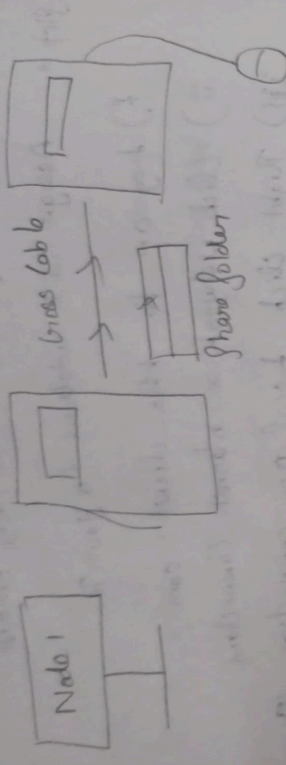 Node 1
Cross Cable
Share folder